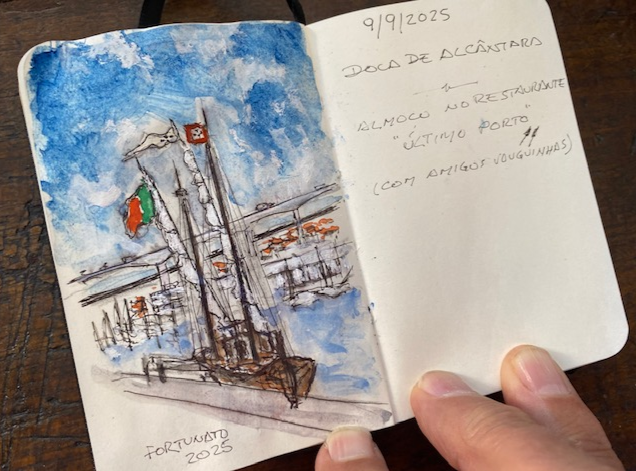 9/9/2025
DOCA DE ALCÂNTARA
ALMOÇO NO RESTAURANTE
"ÚLTIMO PORTO"
(COM AMIGOS VOUGUINHAS)
FORTUNATO
2025